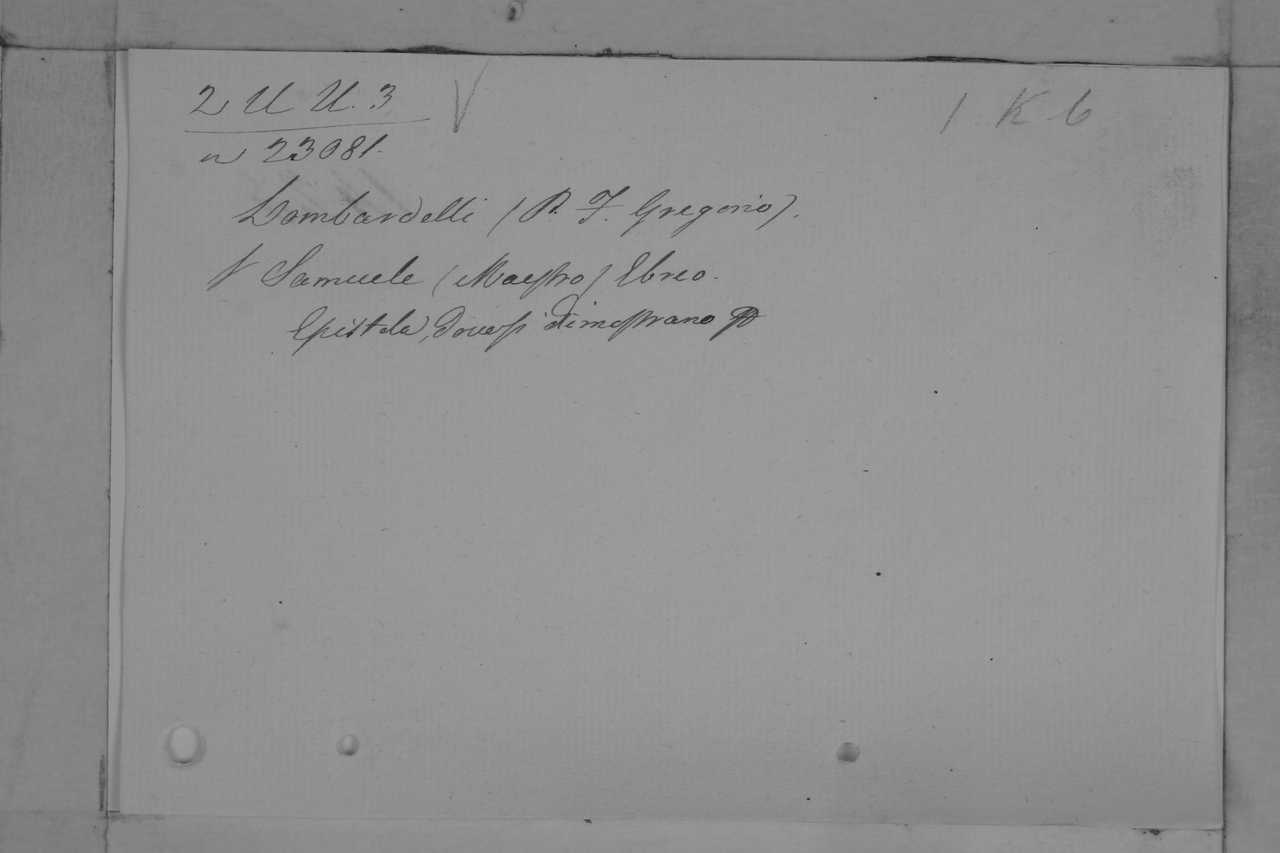 2 U U. 3 V 1 K 6
n 23081.
Lombardelli (P. F. Gregorio).
V Samuele (Maestro) Ebreo.
Epistola, dove si dimostrano